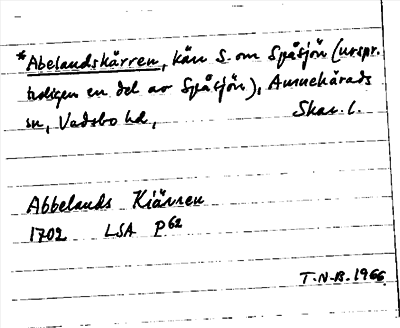 *Abelandskärren, kärr S. om Spåsjön (urspr.
troligen en del av Spåsjön), Amnehärads
sn, Vadsbo hd, Skar. l.
Abbelands Kiärren
1702 LSA P62
T.N.B. 1966